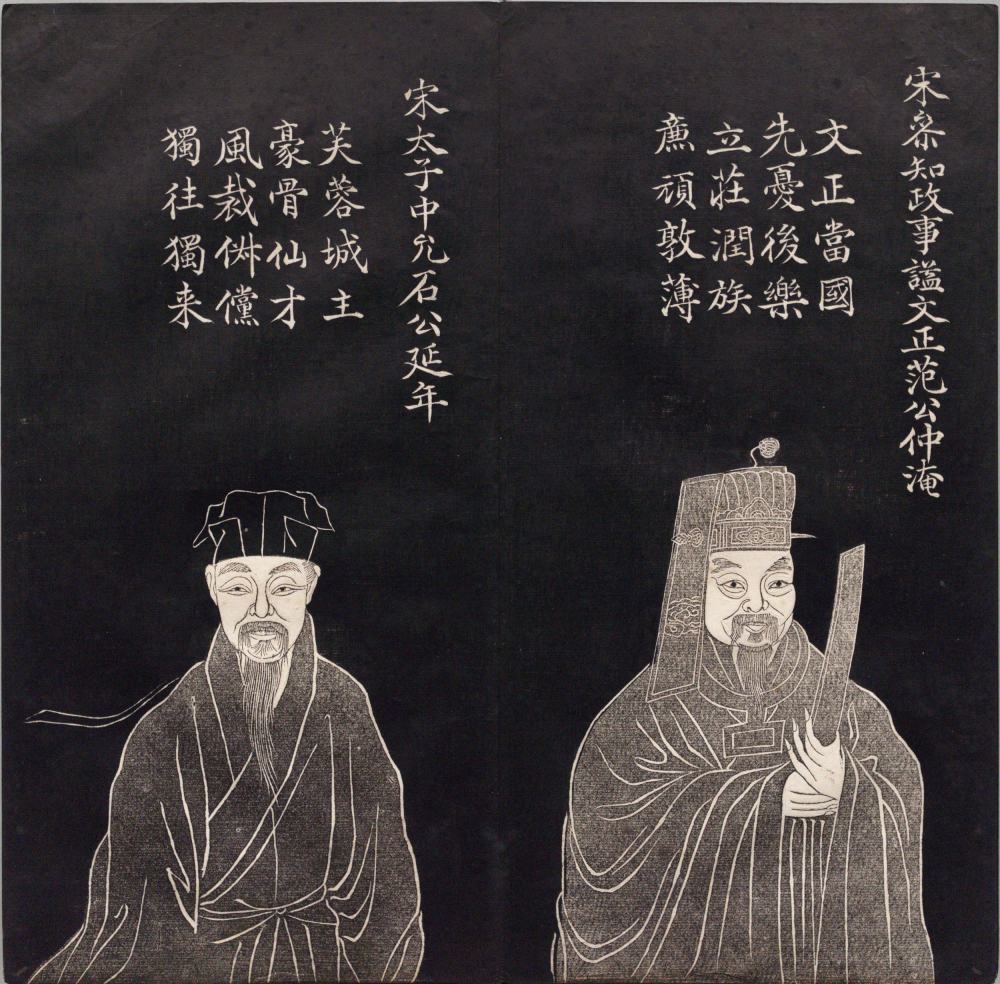 宋叅知政事謚文正范公仲淹
文正當國
先憂後樂
立莊潤族
亷頑敦薄
宋太子中允石公延年
芙蓉城主
豪骨仙才
風裁倜儻
獨往獨来